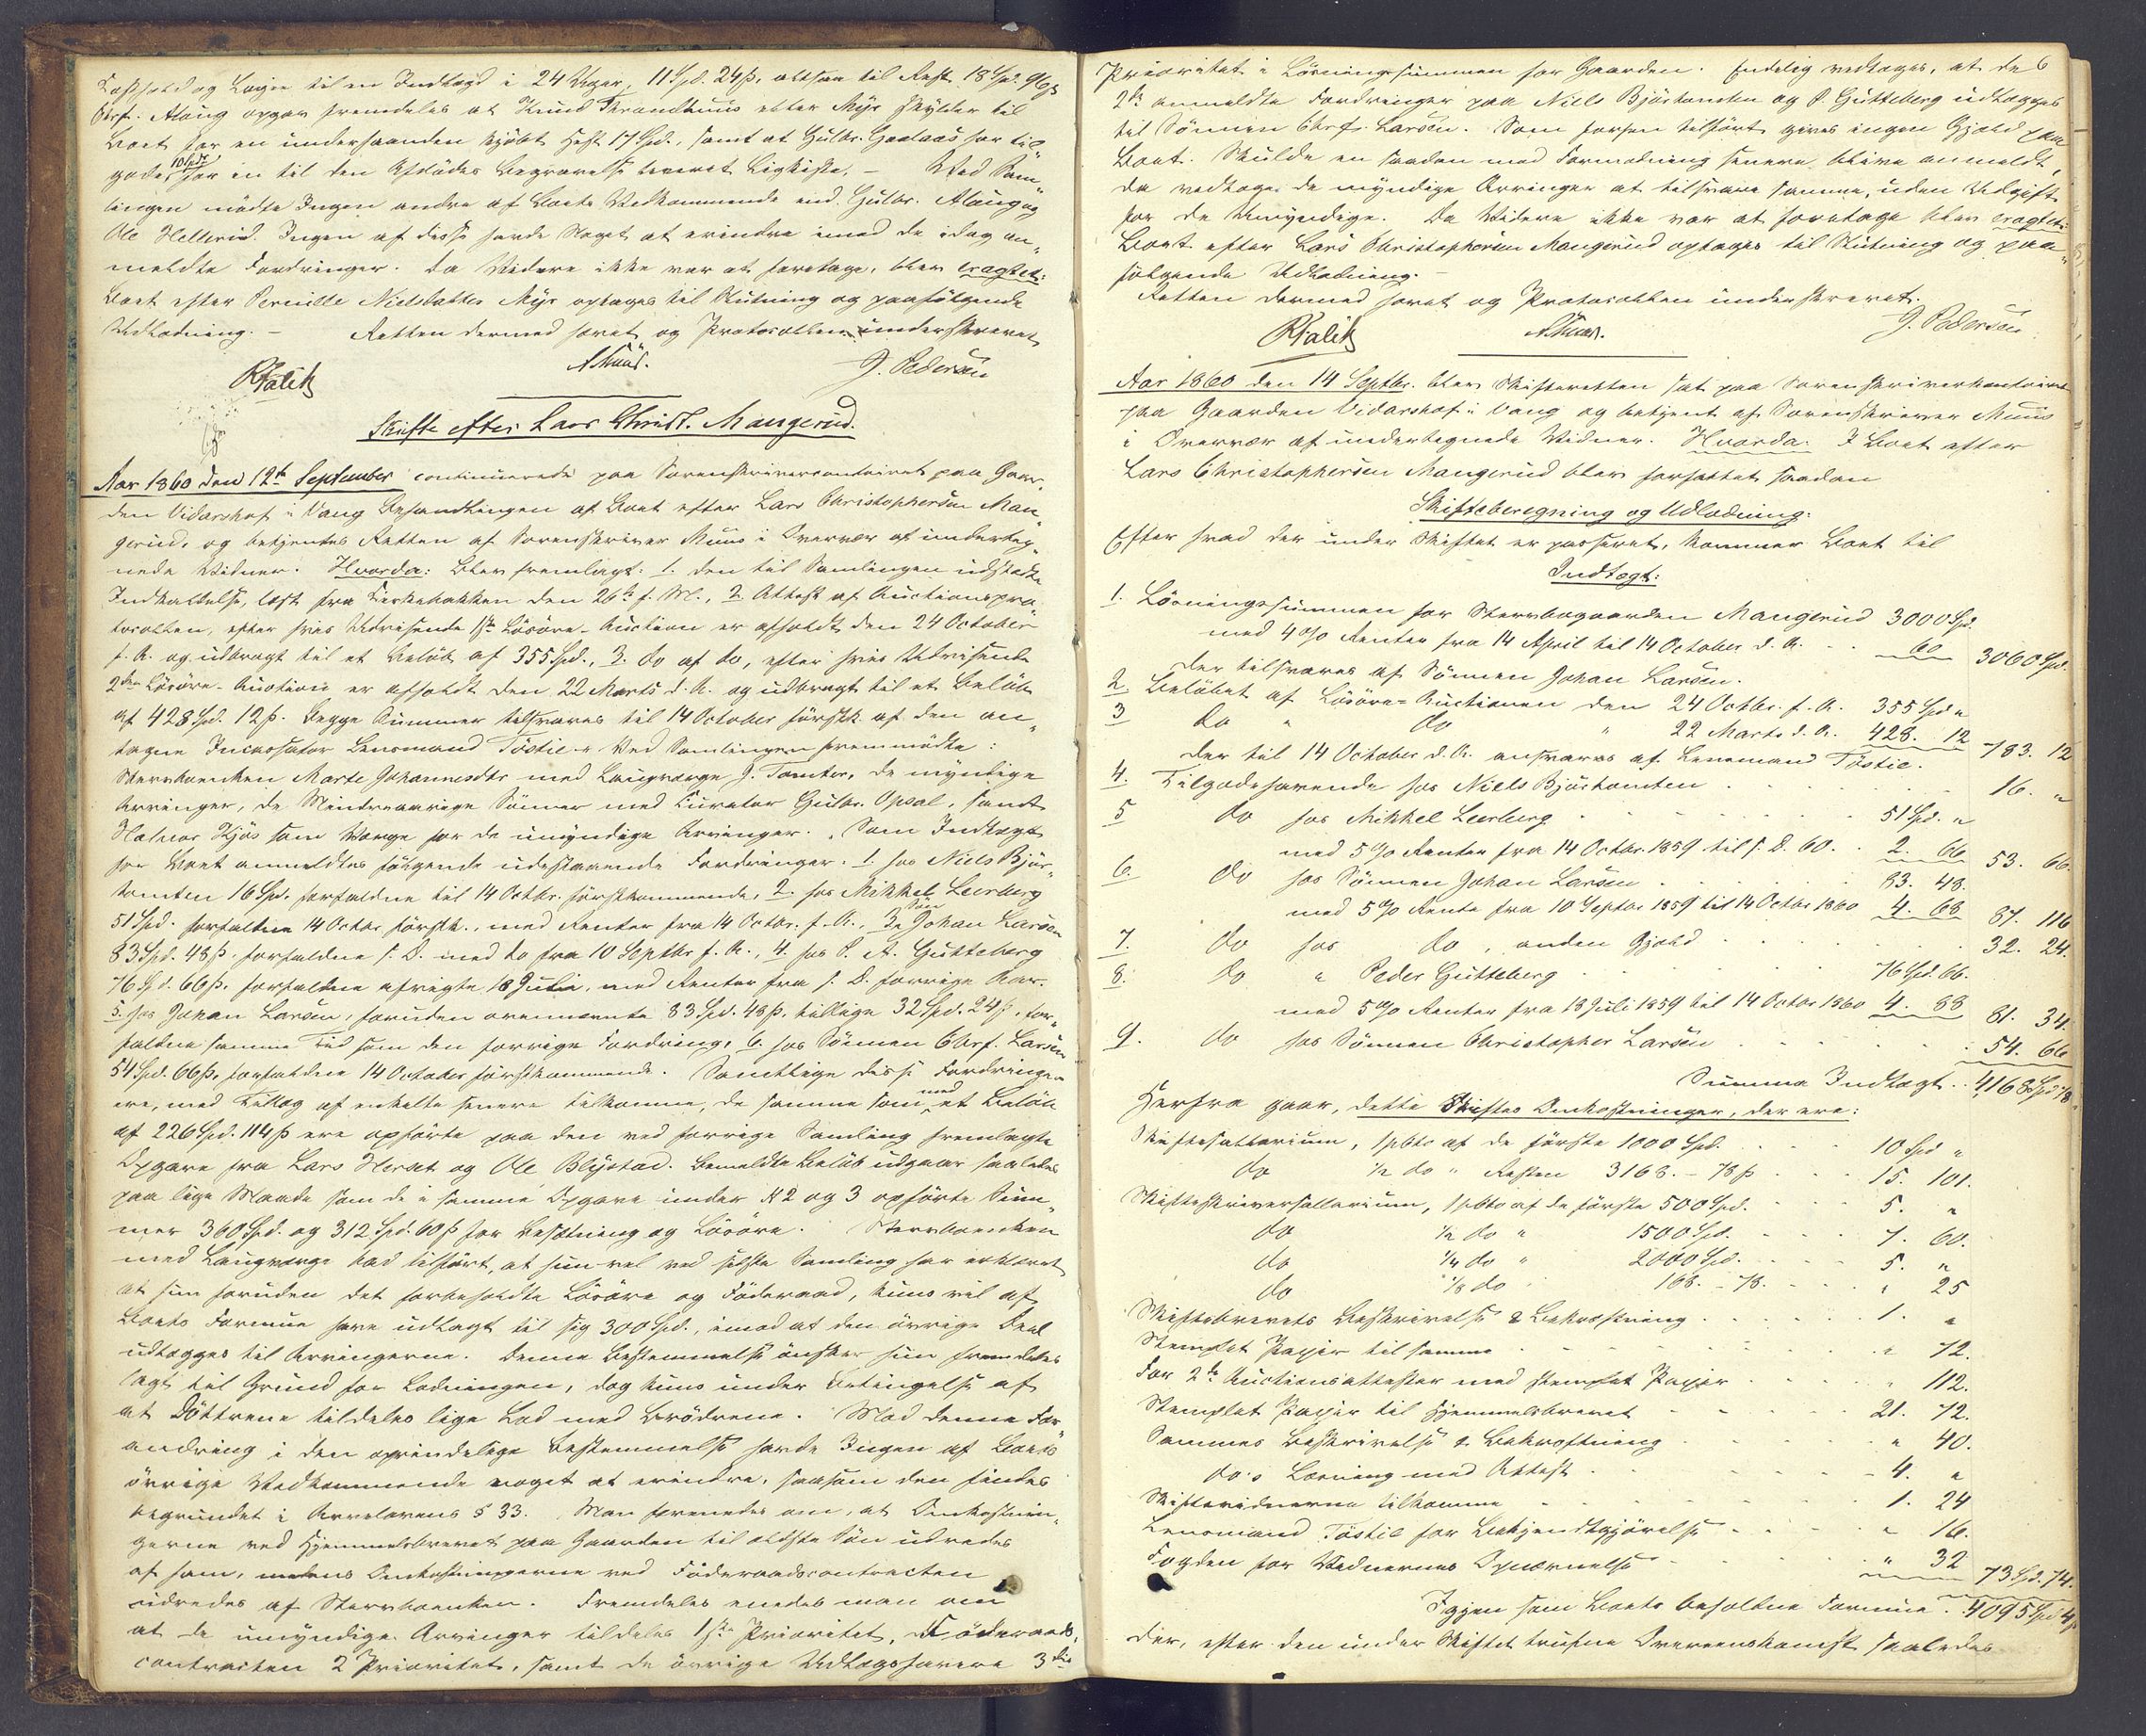 Kosthold og Løier til en Indlagd i 24 Uger, 11 Spd. 24 ß, altsaa til Rest 18 Spd. 96 ß
Chrf. Alaug opgav fremdeles at Knud Thrandhuus efter Myr skylder til
Boet for en underhaanden kjøbt Hest 17 Spd., samt at Gulbr. Gaalaas har til
gode 10 Spd. for en til den Afdødes Begravelse leveret Ligkiste. — Ved Sam„
lingen mødte Ingen andre af Boets Vedkommende end Gulbr. Alaug og
Ole Hellerud. Ingen af disse havde Noget at erindre imod de idag an„
meldte Fordringer. Da Videre ikke var at foretage, blev eragtet:
Boet efter Pernille Nielsdatter Myr optages til Slutning og paafølgende
Udlodning. — Retten dermed hævet og Protocollen underskrevet
RFalck AMuus. J. Pedersen
Skifte efter Lars Christ. Mangerud.
Aar 1860 den 12te September continuerede paa Sorenskrivercontoiret paa Gaar„
den Vidarshof i Vang Behandlingen af Boet efter Lars Christophersen Man„
gerud, og betjentes Retten af Sorenskriver Muus i Overvær af underteg„
nede Vidner. Hvorda: Blev fremlagt: 1. den til Samlingen udstedte
Indkaldelse, læst fra Kirkebakken den 26de f. M., 2. Attest af Auctionspro„
tocollen, efter hvis Udvisende 1ste Løsøre-Auction er afholdt den 24 October
f. A. og udbragt til et Beløb af 355 Spd., 3. do af do, efter hvis Udvisende
2den Løsøre-Auction er afholdt den 22 Marts d. A. og udbragt til et Beløb
af 428 Spd. 12 ß. Begge Summer tilsvares til 14 October førstk. af den an„
tagne Incassator Lensmand Töstie. Ved Samlingen fremmødte:
Stervboenken Marte Johannesdtr med Laugværge J. Tomter, de myndige
Arvinger, de Mindreaarige Sønner med Curator Gulbr. Opsal, samt
Halvor Kjös som Værge for de umyndige Arvinger. Som Indtægt
for Boet anmeldtes følgende udestaaende Fordringer. 1. hos Niels Bjør„
tomten 16 Spd. forfaldne til 14 Octbr. førstkommende, 2. hos Mikkel Leerberg
51 Spd. forfaldne 14 Octbr. førstk., med Renter fra 14 Octbr. f. A., 3. Søn Johan Larsen
83 Spd. 48 ß, forfaldne s. D. med do fra 10 Septbr f. A., 4. hos P. A. Gutteberg
76 Spd. 66 ß, forfaldne afvigte 18 Juli, med Renter fra s. D. forrige Aar.
5. hos Johan Larsen, foruden ovennævnte 83 Spd. 48 ß, tillige 32 Spd. 24 ß, for„
faldne samme Tid som den forrige Fordring, 6. hos Sønnen Chrf. Larsen
54 Spd. 66 ß, forfaldne 14 October førstkommende. Samtlige disse Fordringer
ere, med Tillæg af enkelte senere tilkomne, de samme som med et Beløb
af 226 Spd. 114 ß ere opførte paa den ved forrige Samling fremlagte
Opgave fra Lars Herset og Ole Blystad. Bemeldte Beløb udgaar saaledes
paa lige Maade som de i samme Opgave under N 2 og 3 opførte Sum„
mer 360 Spd. og 312 Spd. 60 ß for Besætning og Løsøre. Stervboenken
med Laugværge bad tilført, at hun vel ved sidste Samling har erklæret
at hun foruden det forbeholdte Løsøre og Föderaad, kuns vil af
Boets Formue have udlagt til sig 300 Spd., imod at den øvrige Deel
udlægges til Arvingerne. Denne Bestemmelse ønsker hun fremdeles
lagt til Grund for Lodningen, dog kuns under Betingelse af
at Døttrene tildeles lige Lod med Brødrene. Mod denne For„
andring i den oprindelige Bestemmelse havde Ingen af Boets
øvrige Vedkommende noget at erindre, saasom den findes
begrundet i Arvelovens § 33. Man forenedes om, at Omkostnin„
gerne ved Hjemmelsbrevet paa Gaarden til ældste Søn udredes
af ham, medens Omkostningerne ved Föderaadscontracten
udredes af Stervboenken. Fremdeles enedes man om
at de umyndige Arvinger tildeles 1ste Prioritet, Föderaads„
contracten 2 Prioritet, samt de øvrige Udlægshavere 3die
Prioritet i Løsningssummen for Gaarden. Endelig vedtoges, at de 6
2de anmeldte Fordringer paa Niels Bjørtomten og P. Gutteberg udlægges
til Sønnen Chrf. Larsen. Som forhen tilført gives ingen Gjæld paa
Boet. Skulde en saadan mod Formodning senere blive anmeldt,
da vedtoge de myndige Arvinger at tilsvare samme, uden Udgift
for de Umyndige. Da Videre ikke var at foretage blev eragtet:
Boet efter Lars Christophersen Mangerud optages til Slutning og paa„
følgende Udlodning. —
Retten dermed hævet og Protocollen underskrevet.
RFalck AMuus. J. Pedersen
Aar 1860 den 14 Septbr. blev Skifteretten sat paa Sorenskriverkontoiret
paa Gaarden Vidarshof i Vang og betjent af Sorenskriver Muus
i Overvær af undertegnede Vidner. Hvorda: I Boet efter
Lars Christophersen Mangerud blev forfattet saadan
Skifteberegning og Udlodning:
Efter hvad der under Skiftet er passeret, kommer Boet til
Indtægt:
1. Løsningssummen for Stervbogaarden Mangerud 3000 Spd.
med 4 % Renter fra 14 April til 14 October d. A. . . 60 3060 Spd.
der tilsvares af Sønnen Johan Larsen.
2. Beløbet af Løsøre-Auctionen den 24 Octbr. f. A. 355 Spd „
3 do „ do „ 22 Marts d. A. 428. 12 783. 12
der til 14 October d. A. ansvares af Lensmand Töstie.
4. Tilgodehavende hos Niels Bjørtomten . . . . 16. „
5 do hos Mikkel Leerberg . . . . 51 Spd. „
med 5 % Renter fra 14 Octbr. 1859 til s. D. 60. . 2. 66 53. 66.
6. do hos Sønnen Johan Larsen . . . . 83. 48.
med 5 % Rente fra 10 Septbr 1859 til 14 Octbr 1860 4. 68 87. 116
7. do hos do, anden Gjæld . . . . 32. 24.
8. do „ Peder Gutteberg . . . . 76 Spd. 66.
med 5 % Renter fra 18 Juli 1859 til 14 Octbr 1860 4. 88 81. 34.
9. do hos Sønnen Christopher Larsen . . . . 54. 66
Summa Indtægt . . 4168 Spd 78
Herfra gaar, dette Skiftes Omkostninger, der ere:
Skiftesallarium, 1 pCto af de første 1000 Spd. . . . 10 Spd „
do ½ do „ Resten 3168. - 78 ß . . . 15. 101.
Skifteskriversallarium, 1 pCto af de første 500 Spd. . . . 5. „
do ½ do „ 1500 Spd. . . . 7. 60.
do ¼ do „ 2000 Spd. . . . 5. „
do ⅛ do 168. - 78. . . . „ 25
Skiftebrevets Beskrivelse & Bekræftning . . . . 1. „
Stemplet Papir til samme . . . . „ 72.
For 2de Auctionsattester med stemplet Papir . . . . „ 112.
Stemplet Papir til Hjemmelsbrevet . . . . 21. 72.
Sammes Beskrivelse & Bekræftning . . . . „ 40.
do.s Læsning med Attest . . . . 4. „
Skiftevidnerne tilkomme . . . . 1. 24
Lensmand Töstie for Bekjendtgjørelse . . . . „ 16.
Fogden for Vidnernes Opnævnelse . . . . „ 32 73 Spd. 74.
Igjen som Boets beholdne Formue . 4095 Spd 4 ß
der, efter den under Skiftet trufne Overeenskomst saaledes